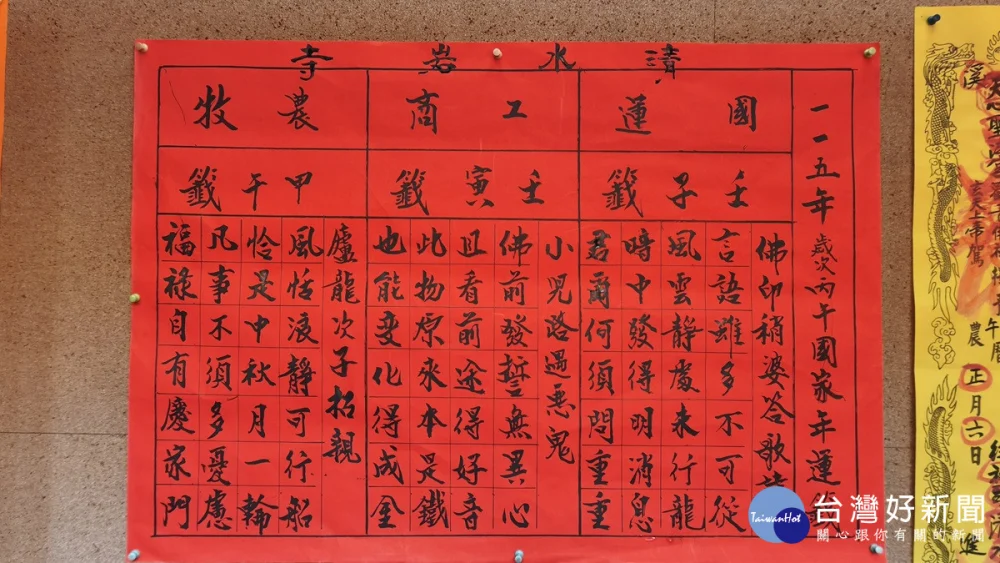 清水岩寺
一一五年 歲次丙午國家年運
國運
壬子籤
佛印稍婆答歌
言語雖多不可從
風雲靜處未行龍
暗中發得明消息
君爾何須問重重
工商
壬寅籤
小兒路遇惡鬼
佛前發誓無異心
且看前途得好音
此物原永本是鐵
也能變化得成金
農牧
甲午籤
廬龍次子招親
風恬浪靜可行船
恰是中秋月一輪
凡事不須多憂慮
福祿自有慶家門
農 正月六日
TaiwanHot
台灣好新聞
關心跟你有關的新聞